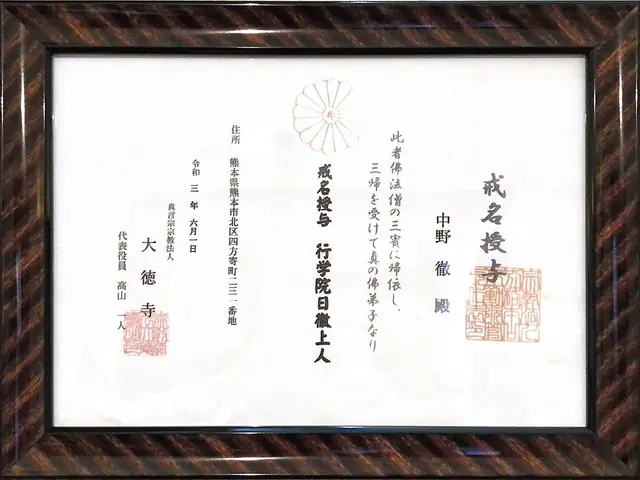 戒名授与
中野 徹 殿
此者佛法僧の三寳に帰依し、
三帰を受けて真の佛弟子なり
戒名授与 行学院日徹上人
住所 熊本県熊本市北区四方寄町二三一番地
令和 三 年 六月一日
真言宗宗教法人
大徳寺
代表役員 高山 一人